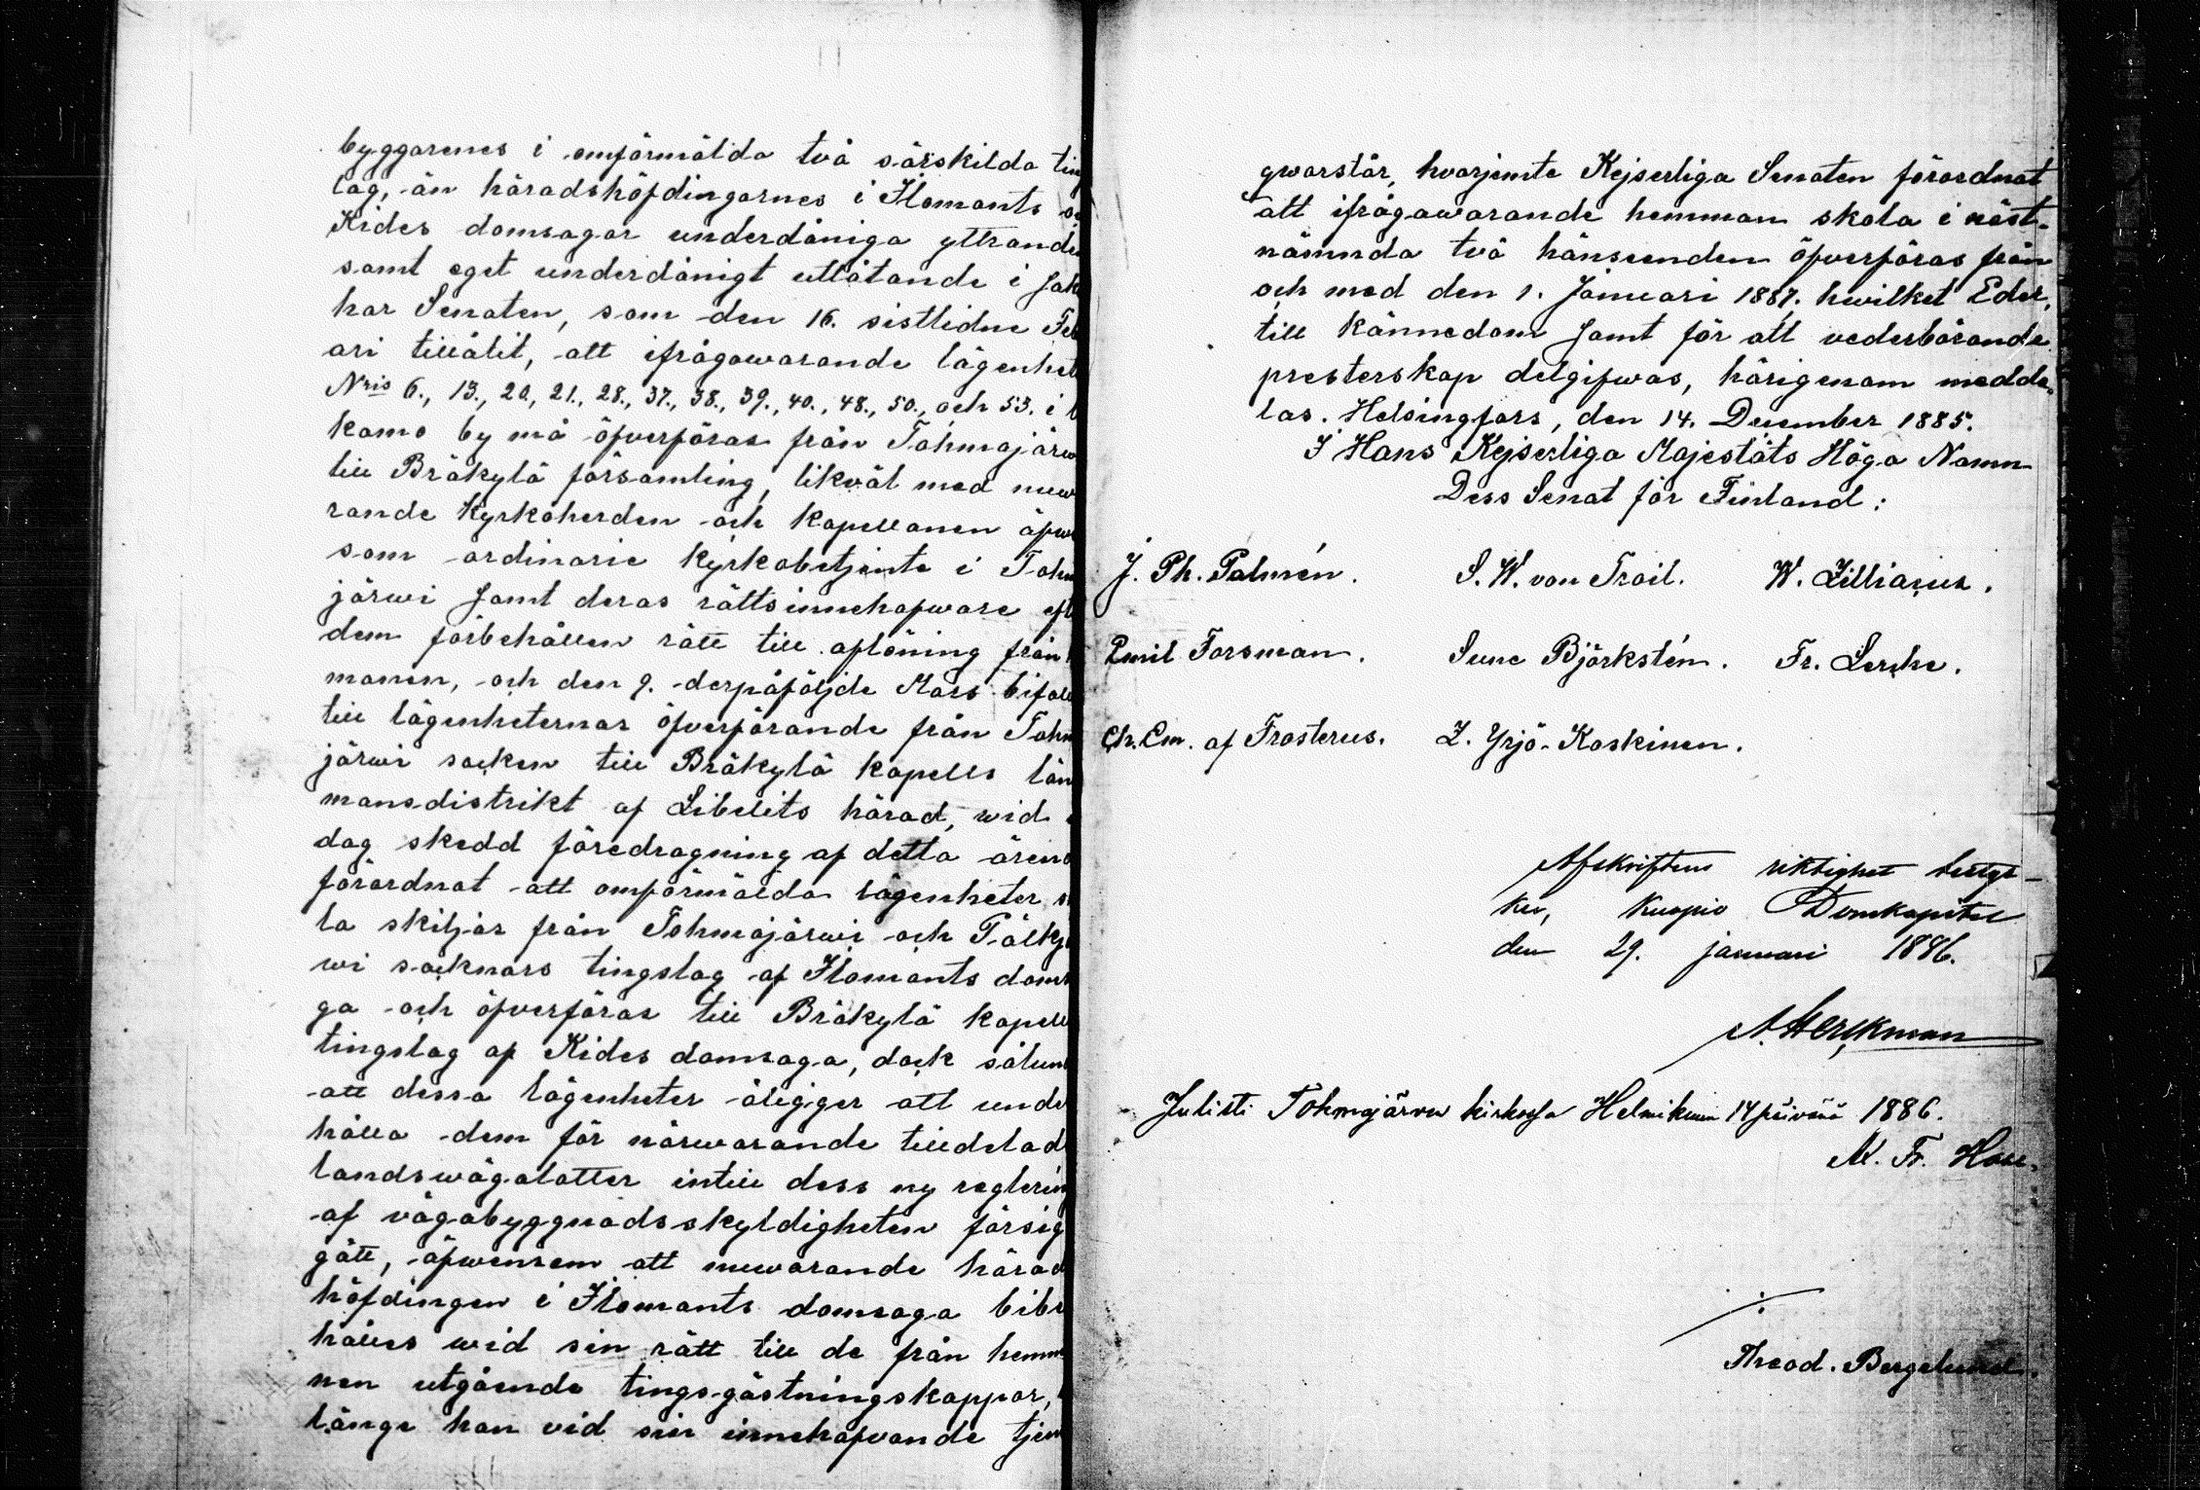 byggarenes i omförmälda två särskilda ting
lag, än häradshöfdingarnes i Ilomants o
Kides domsagor underdåniga yttrande
samt eget underdånigt utlåtande i sak
har Senaten, som den 16. sistlidne Feb
ari tillåtit, att ifrågawarande lägenhet
Nris 6., 13., 20., 21., 28., 37., 38., 39., 40., 48., 50., och 53. i
kamo by må öfverföras från Tohmajärw
till Bräkylä församling, likväl med nuw
rande kyrkoherden och kapellanen äfw
som ordinarie kyrkobetjente i Tohm
järwi samt deras rättsinnehafware eft
dem förbehållen rätt till aflöning från
manen, och den 9. derpåföljde Mars bifall
till lägenheternas öfverförande från Tohm
järwi socken till Bräkylä kapells län
mansdistrikt af Libelits härad, wid
dag skedd föredragning af detta ären
förordnat att omförmälda lägenheter s
la skiljas från Tohmajärwi och Pälkj
wi socknars tingslag af Ilomants doms
ga och öfverföras till Bräkylä kapell
tingslag af Kides domsaga, dock sålun
att dessa lägenheter åligger att unde
hålla dem för närwarande tilldelad
landswägalotter intill dess ny reglerin
af vägabyggnadsskyldigheten försig
gått, äfwensom att nuwarande härad
höfdingen i Ilomants domsaga bibe
hålles wid sin rätt till de från hemm
nen utgående tingsgästningskappor,
länge han vid sin innehafvande tjen
qwarstår, hvarjemte Kejserliga Senaten förordnat
att ifrågawarande hemman skola i näst-
nämnda två hänseenden öfverföras från
och med den 1. Januari 1887. hwilket Eder,
till kännedom samt för att vederbörande
presterskap delgifwas, härigenom medde-
las. Helsingfors, den 14. December 1885.
I Hans Kejserliga Majestäts Höga Namn
Dess Senat för Finland:
J. Ph. Palmén. S. W. von Troil. W. Zilliacus.
Emil Forsman. Sune Björkstén. Fr. Lerche.
Ch. Em. af Frosterus. Z. Yrjö-Koskinen.
Afskriftens riktighet bestyr-
kes, Kuopio Domkapitel
den 29. januari 1886.
A. Herckman
Julisti Tohmajärven kirkossa Helmikuun 14 päivänä 1886.
M. Fr.
Theod. Bergelund.